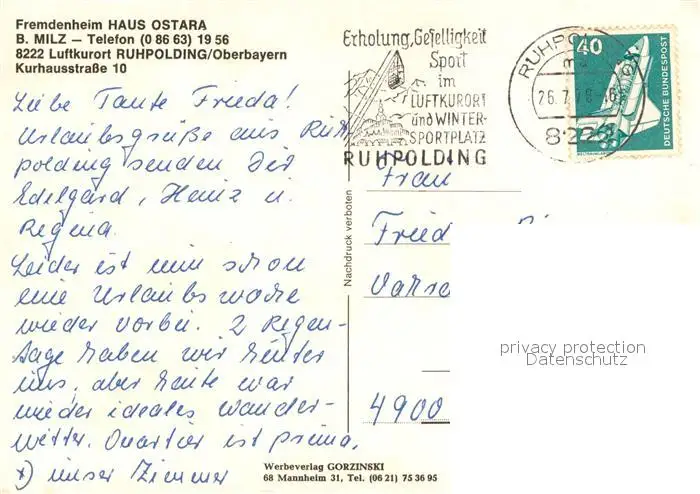 Fremdenheim HAUS OSTARA
B. MILZ — Telefon (0 86 63) 19 56
8222 Luftkurort RUHPOLDING/Oberbayern
Kurhausstraße 10
Liebe Tante Frieda!
Urlaubsgrüße aus Ruh
polding senden Dir
Edelgard, Heinz u.
Regina.
Leider ist nun schon
eine Urlaubswoche
wieder vorbei. 2 Regen-
tage haben wir hinter
uns, aber heute war
wieder ideales Wander-
wetter. Quartier ist prima.
*) unser Zimmer
Erholung, Geselligkeit
Sport
im
LUFTKURORT
und WINTER-
SPORTPLATZ
RUHPOLDING
RUHPOL
26.7.
8222
40
DEUTSCHE BUNDESPOST
Frau
Fried
4900
Nachdruck verboten
privacy protection
Datenschutz
Werbeverlag GORZINSKI
68 Mannheim 31, Tel. (06 21) 75 36 95